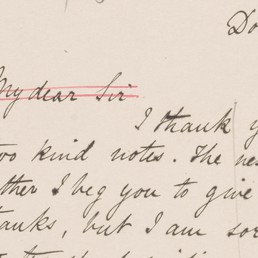 Do
My dear Sir
I thank y
too kind notes. The ne
ther I beg you to give
hanks, but I am sor